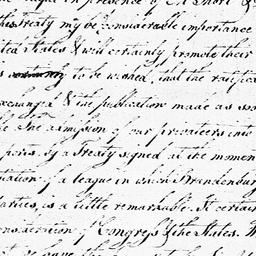 in presence of M Short &
this treaty may be considerable importance
ited States & will certainly promote their
to be wished, that the ratifica
exchanged & the publication made as soo
the admission of our privateers into
ports, by a Treaty signed at the momen
tiation of a league in which Brandenbur
arties, is a little remarkable. It certain
onsideration of Congress & the States. W